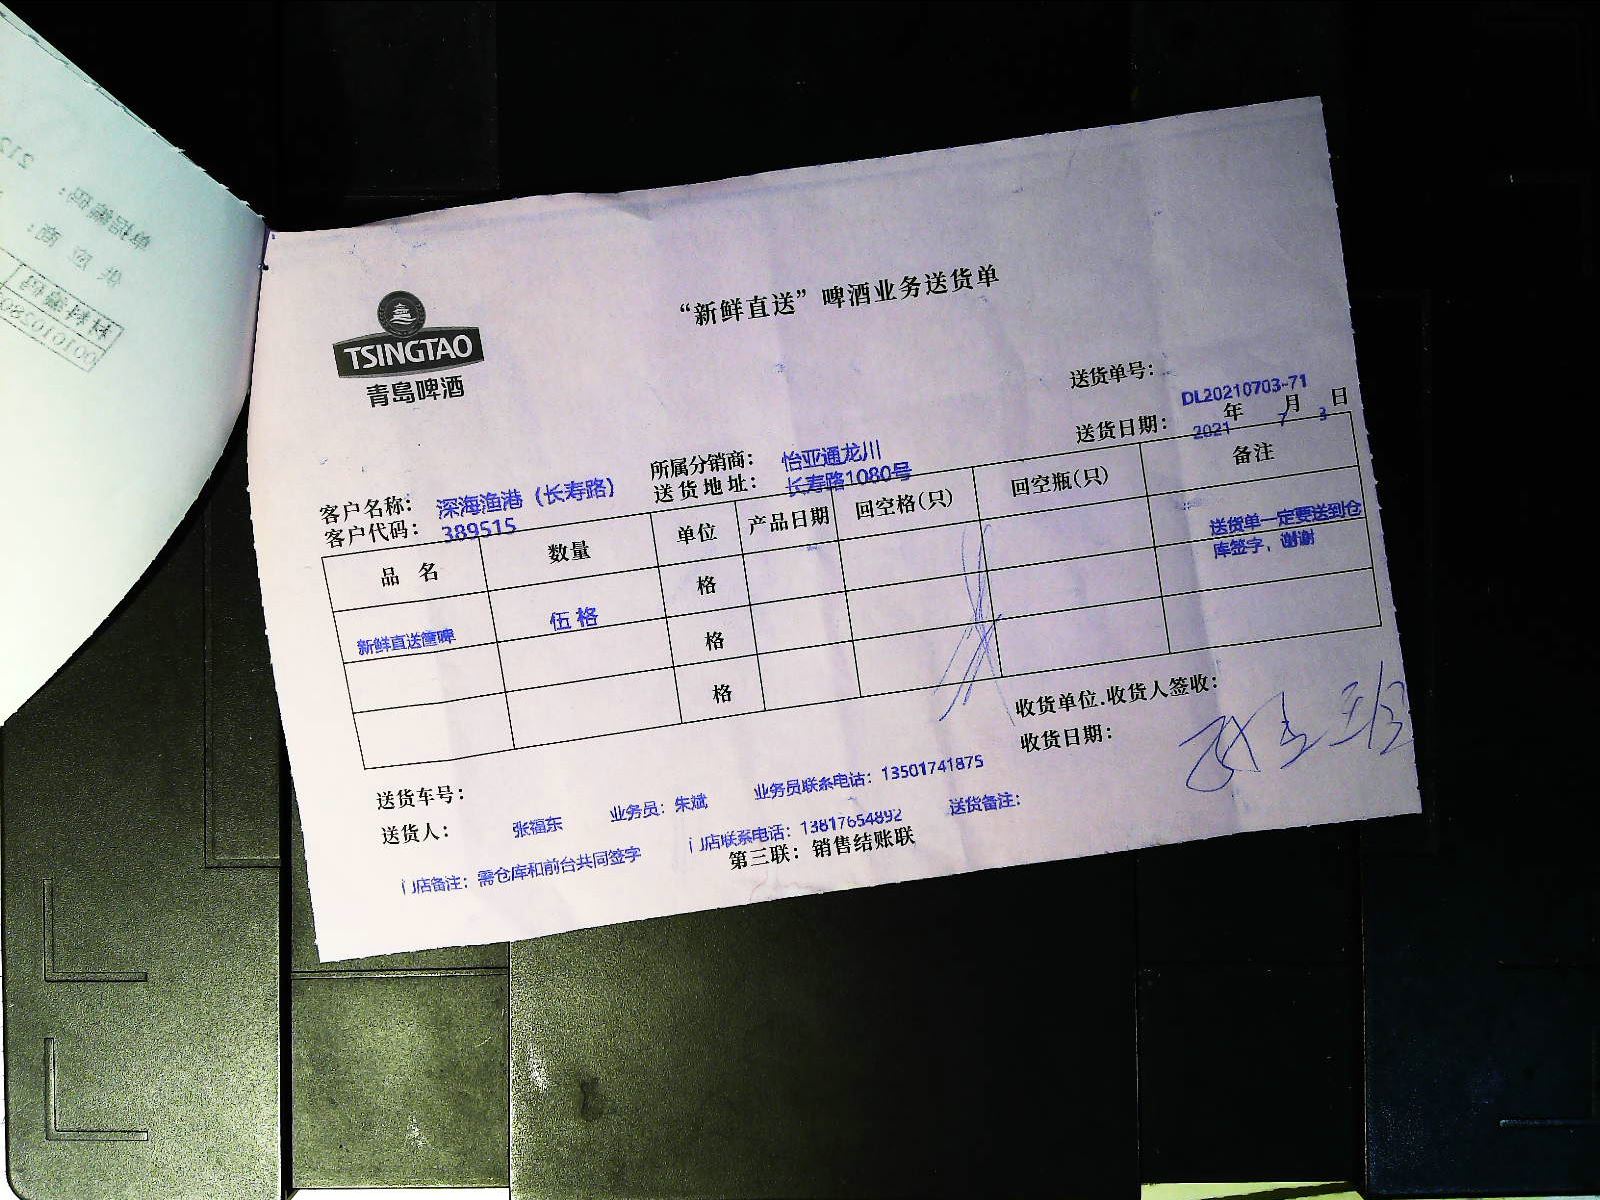 TSINGTAO
青岛啤酒
“新鲜直送”啤酒业务送货单
送货单号： DL20210703-71
送货日期： 2021 年 7 月 3 日
客户名称： 深海渔港（长寿路） 所属分销商： 怡亚通龙川
客户代码： 389515 送货地址： 长寿路1080号
品 名 数量 单位 产品日期 回空格(只) 回空瓶(只) 备注
新鲜直送筐啤 伍格 格 送货单一定要送到仓
库签字，谢谢
格
格
收货单位.收货人签收：
收货日期：
送货车号：
送货人： 张福东 业务员：朱斌 业务员联系电话：13501741875
门店备注：需仓库和前台共同签字 门店联系电话：13817654892 送货备注：
第三联：销售结账联